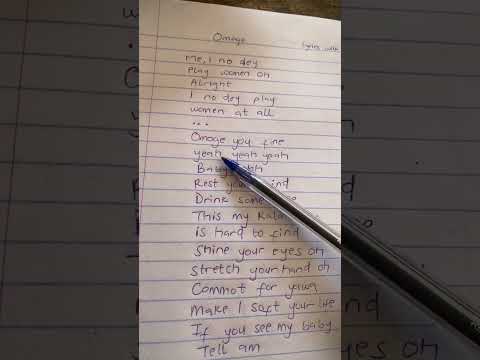 Omoge
lyrics
Me, I no dey
Play women oh
Alright
I no dey play
women at all
...
Omoge you fine
yeah yeah yeah
Baby
Rest your
Drink some
This my
is hard to find
Shine your eyes oh
Stretch your hand oh
Commot for yawa
Make I soft your life
If you see my baby
Tell am